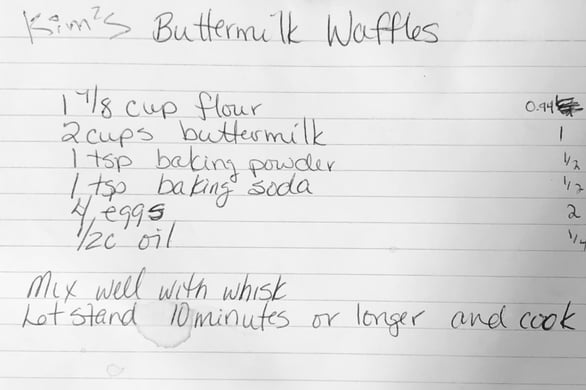 Kim's Buttermilk Waffles
1 7/8 cup flour 0.94
2 cups buttermilk 1
1 tsp baking powder 1/2
1 tsp baking soda 1/2
4 eggs 2
1/2c oil 1/4
Mix well with whisk
Let stand 10 minutes or longer and cook